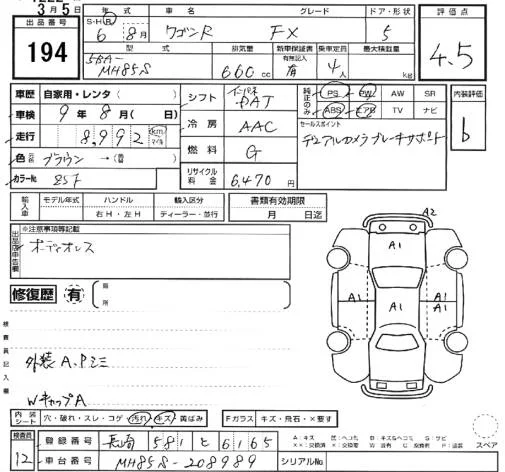 3月5日
出品番号
194
年式
S・H・R
6年8月
車名
ワゴンR
グレード
FX
ドア・形状
5
評価点
4.5
型式
5BA-
MH85S
排気量
660cc
新車保証書
有無記入
有
乗車定員
4人
最大積載量
kg
車歴 自家用・レンタ( )
車検 9年8月( 日)
走行 8,992 km マイル
色 ブラウン →( 番)
カラーNo.
シフト DAT
冷房 AAC
燃料 G
リサイクル料金 6,470円
純正のみ
PS PW AW SR
ABS TV ナビ
セールスポイント
デュアルカメラブレーキサポート
内装評価
b
輸入車
モデル年式
ハンドル
右H・左H
輸入区分
ディーラー・並行
書類有効期限
月 日迄
出品店申告欄
※注意事項等記載
オーディオレス
修復歴 有
箇所
検査員記入欄
外装A、Pミミ
WキャップA
A2
A1
A1
A1
A1
内装シート
穴・破れ・スレ・コゲ・汚れ・キズ・黄ばみ
Fガラス
キズ・飛石・×要す
スペア
検査員
12
登録番号 長崎 581 と 6165
車台番号 MH85S-208989
シリアルNo.